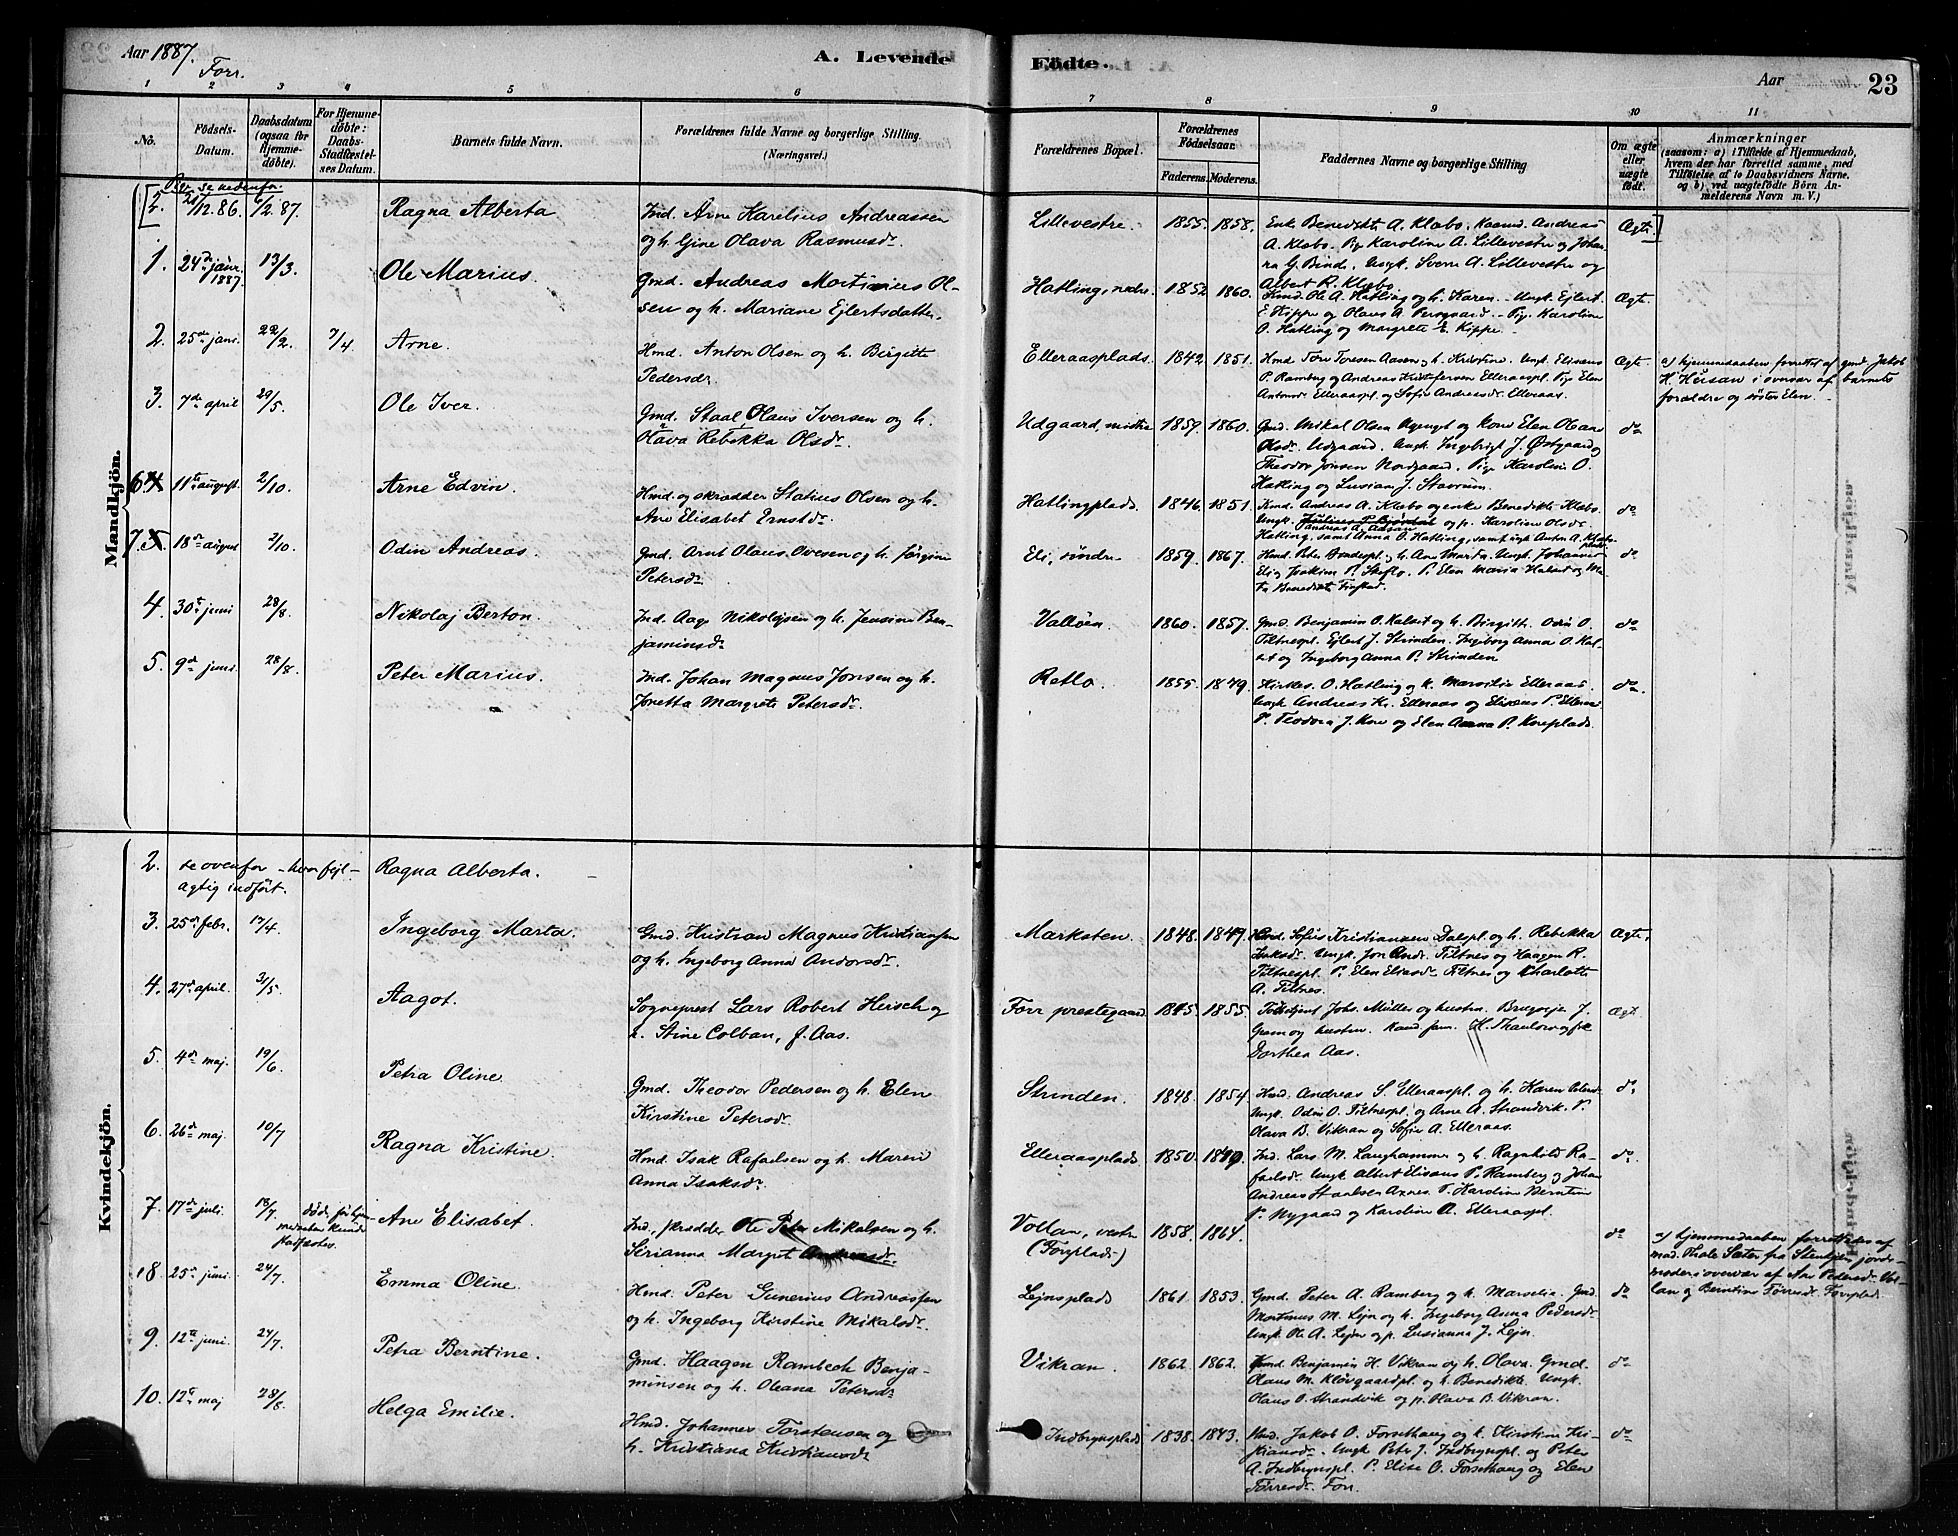 Aar 1887.
Forr.
A. Levende Födte.
Aar 23
1 2 3 4 5 6 7 8 9 10 11
No.
Födsels-Datum.
Daabsdatum (ogsaa for Hjemmedöbte).
For Hjemmedöbte: Daabs-Stadfæstelses Datum.
Barnets fulde Navn.
Forældrenes fulde Navne og borgerlige Stilling.
(Næringsvei.)
Forældrenes Bopæl.
Forældrenes Födselsaar.
Faderens. Moderens.
Faddernes Navne og borgerlige Stilling
Om ægte eller uægte födt.
Anmærkninger
(saasom: a) i Tilfælde af Hjemmedaab, hvem der har forrettet samme, med Tilföielse af to Daabsvidners Navne, og b) ved uægtefödte Börn Anmelderens Navn m. V.)
Mandkjön.
se nedenfor.
2. 12.86. 6/2.87. Ragna Alberta Ind. Arne Karelius Andreassen
og h. Gine Olava Rasmusdr. Lillevestre. 1855. 1858. Enk. Benedikte A. Klæbo. Andreas
A. Klæbo. Pig. Karoline A. Lillevestre og Johanna G. Binde. Ungk. Svern A. Lillevestre og
Albert R. Klæbo Ægte.
1. 24de janr. 1887. 13/3. Ole Marius. Gmd. Andreas Mortinius Olsen og h. Mariane Ejlertsdatter. Hatling, nedre. 1852 1860. Kmd. Ole A. Hatling og h. Karen. Ungk. Ejlert
E. Kippe og Olaus A. Pig. Karoline
O. Hatling og Margrete E. Kippe. Ægte.
2. 25de janr. 22/2. 7/4. Arne. Hmd. Anton Olsen og h. Birgitte
Pedersdr. Elleraasplads. 1842 1851. Hmd Tore Toresen Aasen og h. Kristine. Ungk. Elisæus
P. Ramberg og Andreas Kristofersen Elleraaspl. Pige Elen
Antonsdr. Elleraaspl. og Sofie Andreasdr. Elleraas. Ægte. a) hjemmedaaben forrettet af gmd. Jakob
H. Husan i overvær af barnets
forældre og søster Elen.
3. 7de april 29/5. Ole Iver. Gmd. Staal Olaus Iversen og h.
Olava Rebekka Olsdr. Udgaard midtre 1859. 1860. Gmd. Mikal Olsen og kone Elen Oleana
Olsdr. Udgaard. Ungk. Ingebrigt J. Østgaard og
Theodor Jonsen Nordgaard. Pig. Karolin O.
Hatling og Lusian J. Stavrum. do
6 4. 11te august. 2/10. Arne Edvin. Hmd. og skrædder Statius Olsen og h.
Ane Elisabet Ernstdr. Hatlingplads 1846. 1851. Kmd. Andreas A. Klæbo og enke Benedikte Klæbo.
Ungk. Andreas A. Aasan og p. Karoline Olsdr.
Hatling, samt Anna O. Hatling, samt ungk Anton A. do
7 5. 18de august 2/10. Odin Andreas. Gmd. Arnt Olaus Ovesen og h. Jørgine
Petersdr. Eli, søndre 1859. 1867. Hmd. Peter og h. Ane Marta. Ungk. Johannes
Eli og Joakim P. Skeflo. P. Elen Maria Halset og
Benedikte Finstad. do
4. 30te juni 28/8. Nikolaj Berton. Ind. Aage Nikolejsen og h. Jensine Benjaminsdr Valløen. 1860. 1857. Gmd. Benjamin O. Halset og h. Birgitte. Odin O.
Tiltnespl. Ejlert J. Strinden. Ingeborg Anna O. Halset og Ingeborg Anna P. Strinden do
5. 9de juni. 28/8. Peter Marius. Ind. Johan Magnus Jonsen og h.
Jonetta Margrete Petersdr. Retlo. 1855. 1849. Kirkes. O. Hatling og h. Marsilie Elleraas.
Ungk. Andreas Kr. Elleraas og Elisæus P. Elleraas
P. Teodora J. Korse og Elen Anna P. Korseplads. do.
Kvindekjön.
2. se ovenfor – hvor fejlagtig indført. Ragna Alberta.
3. 25de febr. 17/4. Ingeborg Marta. Gmd. Kristian Magnus Kristiansen
og h. Ingeborg Anna Andorsdr. Marksten. 1848. 1849. Hmd. Sofus Kristiansen Dalspl. og h. Rebekka
Isaksdr. Ungk. Jon Andr. Tiltnes og Haagen R.
Tiltnespl. P. Elen Eliasdr Tiltnes og Charlotte
A. Tiltnes. Ægte.
4. 27de april. 31/5. Aagot. Sogneprest Lars Robert Hersch og
h. Stine Colban, f. Aas. Forr prestegaard 1845. 1855. Johs. Müller og hustru. Brugseje J.
Gram og hustru. Kand. fam. H. Thaulow og frk
Dorthea Aas. Ægt.
5. 4de maj. 19/6. Petra Oline. Gmd. Theodor Pedersen og h. Elen
Kirstine Petersdr. Strinden. 1848. 1854. Hmd. Andreas S. Elleraaspl. og h. Karen Petersdr
Ungk. Odin O. Tiltnespl. og Arne A. Strandvik. P.
Olava B. Vikran og Sofie A. Elleraas. do
6. 26de maj. 10/7 Ragna Kristine. Hmd. Isak Rafaelsen og h. Maren
Anna Isaksdr. Elleraasplads 1850. 1849. Ind. Lars M. Langhammer og h. Ragnhild Rafaelsdr. Ungk Albert Elisæus P. Ramberg og Johan
Andreas Staalsen Aznes. P. Karoline Berntine
P. Nygaard og Karoline A. Elleraaspl. do.
7. 17de juli. 18/7. døde, før hjemmedaaben kunde stadfæstes. Ane Elisabet. Ind., skrædder Ole Peter Mikalsen og h.
Serianna Margret Andreasdr. Vollan, vestre
(Forrplads) 1858. 1864. do a) hjemmedaaben forrettedes af
mad. Thale Sæter fra Stenkjær, jordmoder i overvær af Ane Pedersdr. Vollan og Berntine Tørresdr. Forrplad.
8. 25de juni. 24/7. Emma Oline. Hmd. Peter Gunerius Andreassen
og h. Ingeborg Kirstine Mikalsdr. Lejnsplads 1861. 1853. Gmd. Peter A. Ramberg og h. Marselia. Gmd.
Mortinus M. Lejn og h. Ingeborg Anna Pedersdr
Ungk. Ole A. Lejn og p. Lusianna J. Lejn. do
9. 12te juni. 24/7. Petra Berntine. Gmd. Haagen Rambech Benjaminsen og h. Oleana Petersdr. Vikran. 1862. 1862. Kmd. Benjamin H. Vikran og h. Olava. Gmd.
Olaus M. Kløvgaardspl. og h. Benedikte. Ungk.
Olaus O. Strandvik og p. Olava B. Vikran. do
10. 12te maj 28/8. Helga Emilie. Hmd. Johannes Torstensen og
h. Kristiana Kristiansdr Indbrynsplads 1838. 1843. Hmd. Jakob O. Forsethaug og h. Kirstine Kristiansdr. Ungk Peter J. Indbrynspl. og Peter
A. Indbrynspl. P. Elise O. Forsethaug og Elen
Tørresdr. Forr. do